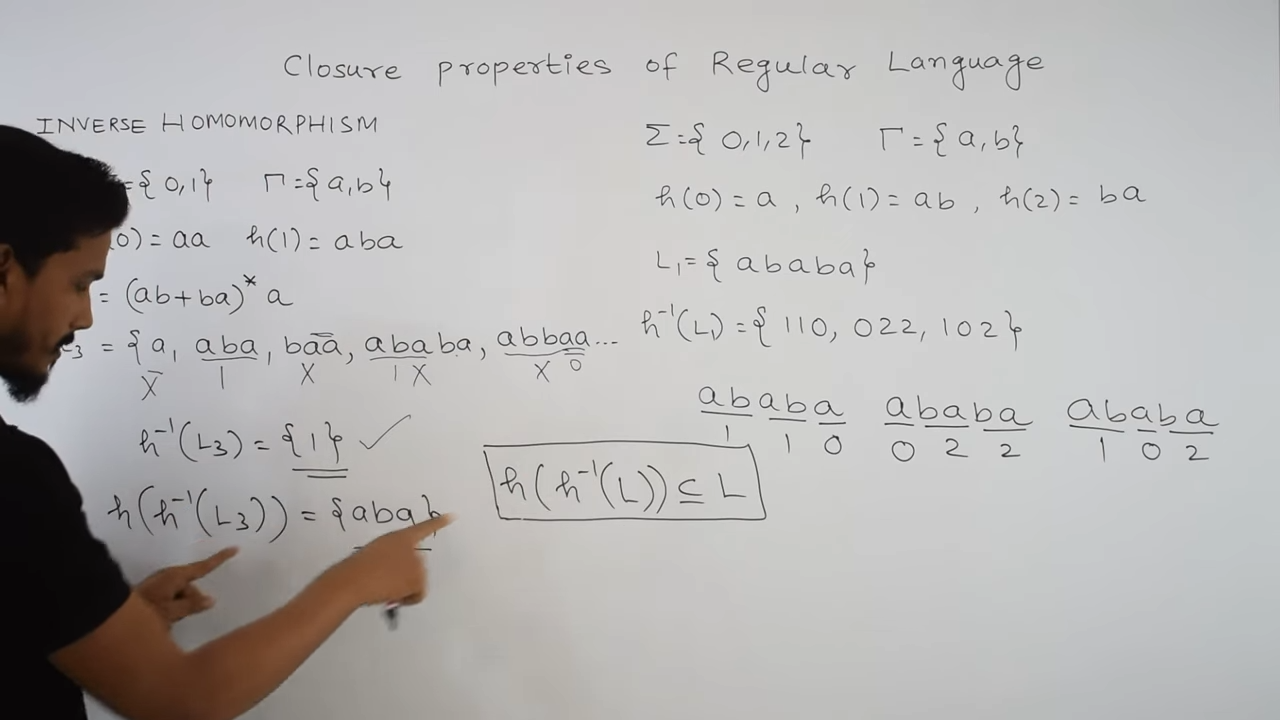 Closure properties of Regular Language
INVERSE HOMOMORPHISM
={0,1} Γ={a,b}
0)= aa h(1)= aba
= (ab+ba)* a
3 = {a, aba, baa, ababa, abbaa...
X 1 X 1 X X 0
h⁻¹(L3) = {1} ✓
h(h⁻¹(L3)) = {aba}
h(h⁻¹(L)) ⊆ L
Σ={0,1,2} Γ={a,b}
h(0)= a, h(1)= ab, h(2)= ba
L₁={ababa}
h⁻¹(L₁)={110, 022, 102}
ababa ababa ababa
1 1 0 0 2 2 1 0 2